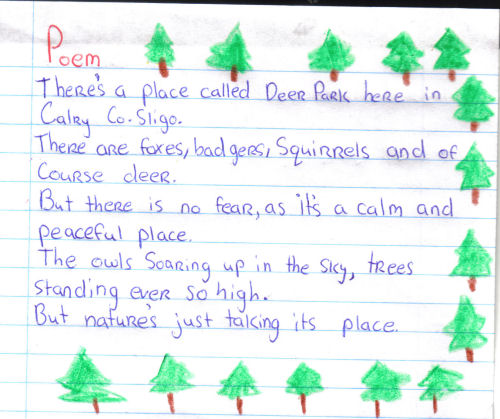 Poem
There's a place called Deer Park here in
Calry Co. Sligo.
There are foxes, badgers, Squirrels and of
Course deer.
But there is no fear, as it's a calm and
peaceful place.
The owls Soaring up in the sky, trees
standing ever so high.
But nature's just taking its place.